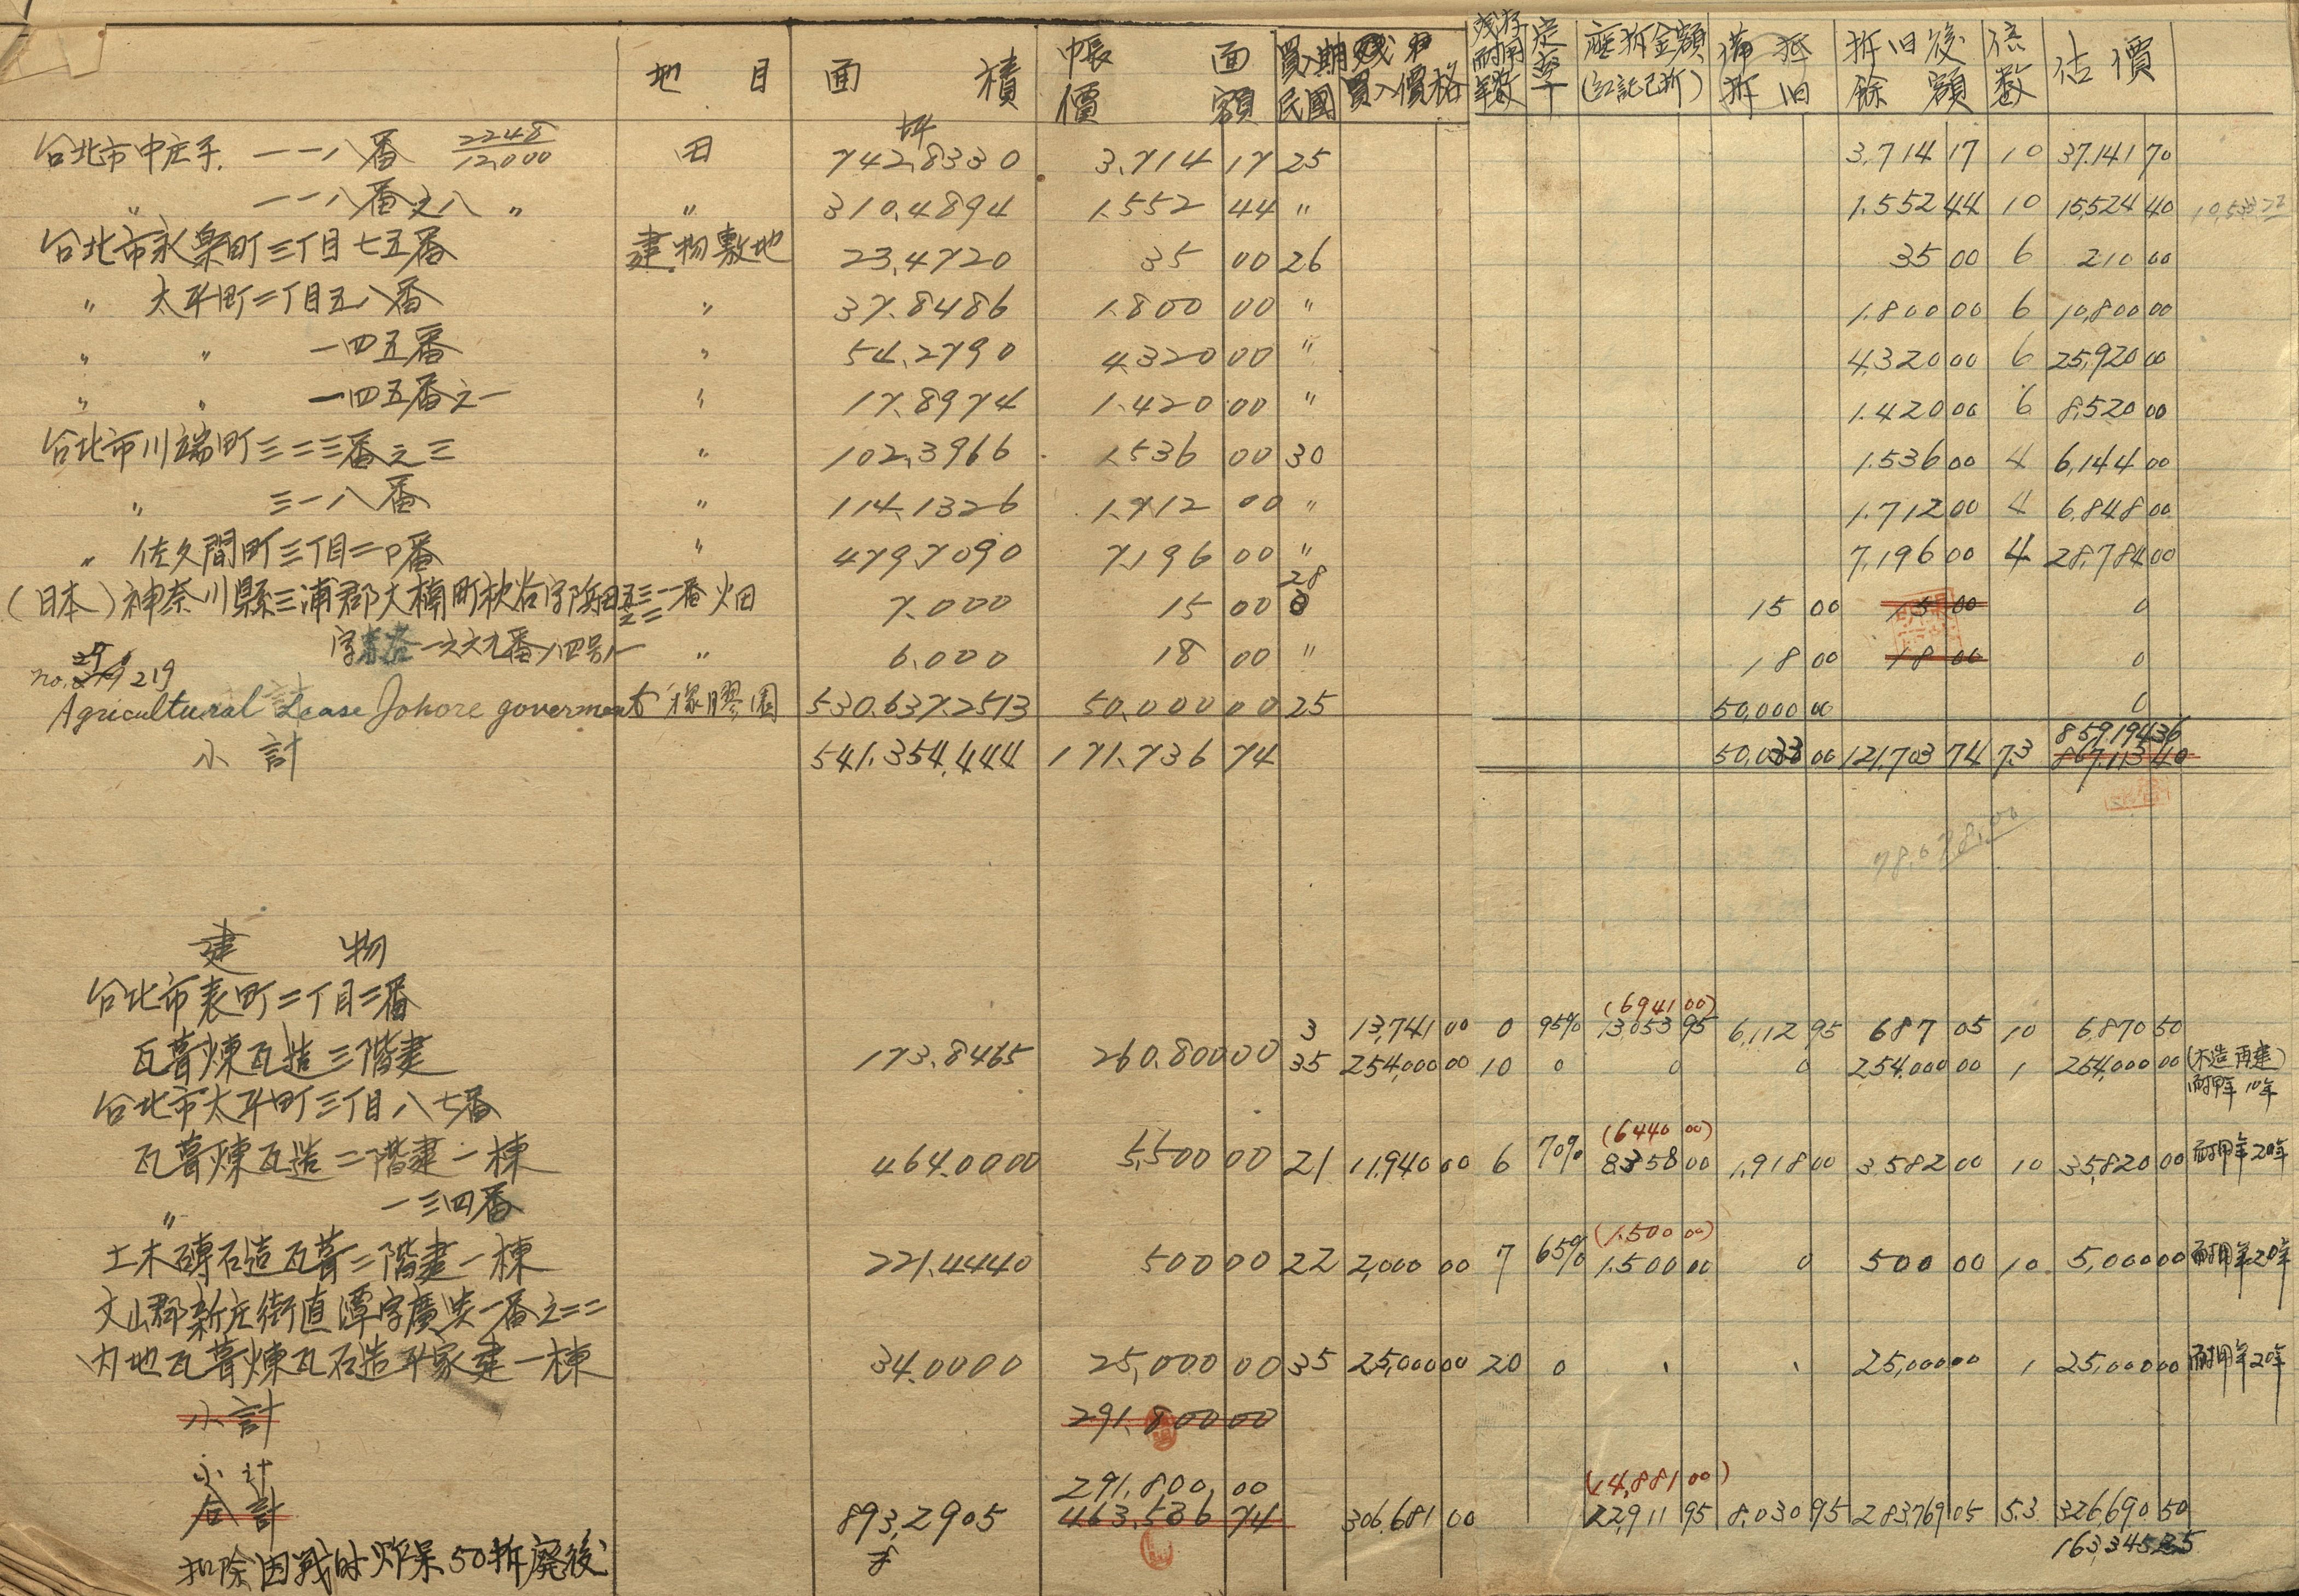 地目 面積 帳面價額 買入期民國 買入價格 残存耐用年数 定率 應折金額(紅記已折) 備抵折旧 折旧後餘額 倍数 估價
台北市中庄子 一一八番 2248/12,000 田 坪 742,8330 3,714 17 25 3,714 17 10 37,141 70
〃 一一八番之八 〃 〃 310,4894 1,552 44 〃 1,552 44 10 15,524 40
台北市永楽町三丁目七五番 建物敷地 23,4720 35 00 26 35 00 6 210 00
〃 太平町二丁目五八番 〃 37.8486 1.800 00 〃 1.800 00 6 10,800 00
〃 〃 一四五番 〃 54.2790 4320 00 〃 4,320 00 6 25,920 00
〃 〃 一四五番之一 〃 17.8974 1.420 00 〃 1.420 00 6 8,520 00
台北市川端町三二三番之三 〃 102,3966 1.536 00 30 1.536 00 4 6,144 00
〃 三一八番 〃 114.1326 1.712 00 〃 1.712 00 4 6,848 00
〃 佐久間町三丁目二P番 〃 479.7090 7,196 00 〃 7,196 00 4 28,784 00
(日本)神奈川縣三浦郡大楠町秋谷字浜田五三一番之二 畑 7.000 15 00 28 15 00 15 00 0
字 一六六九番ノ四号ノ一 〃 6.000 18 00 〃 18 00 18 00 0
no. 219
Agricultural Lease Johore goverment 橡膠園 530.637.2513 50,000 00 25 50,000 00 0
小計 541.354,444 171.736 74 50,033 00 121,703 74 7.3 859,194 36
867,113 40
78,078,00
建物
台北市表町二丁目二番
(6941 00)
3 13,741 00 0 95% 13,053 95 6,112 95 687 05 10 6,870 50
瓦葺煉瓦造三階建 173.8465 260.800 00 35 254,000 00 10 0 0 0 254.000 00 1 254,000 00 (木造再建)
耐用年10年
台北市太平町三丁目八七番
(6440 00)
瓦葺煉瓦造二階建一棟 464.0000 5,500 00 21 11,940 00 6 70% 8358 00 1,918 00 3.582 00 10 35,820 00 耐用年20年
〃 一三四番
(1.500 00)
土木磚石造瓦葺二階建一棟 221.4440 500 00 22 2,000 00 7 65% 1.500 00 0 500 00 10 5,000 00 耐用年20年
文山郡新庄街直潭字廣 一番之二二
内地瓦葺煉瓦石造平家建一棟 34.0000 25,000 00 35 25,000 00 20 0 、 、 25,000 00 1 25,000 00 耐用年20年
小計 291.800 00
小計 291,800,00 (14,881 00)
合計 893,2905 463,536 74 306,681 00 22,911 95 8,030 95 283,769 05 5.3 326,690 50
扣除因戦時炸呆50折廃後 163,345 25